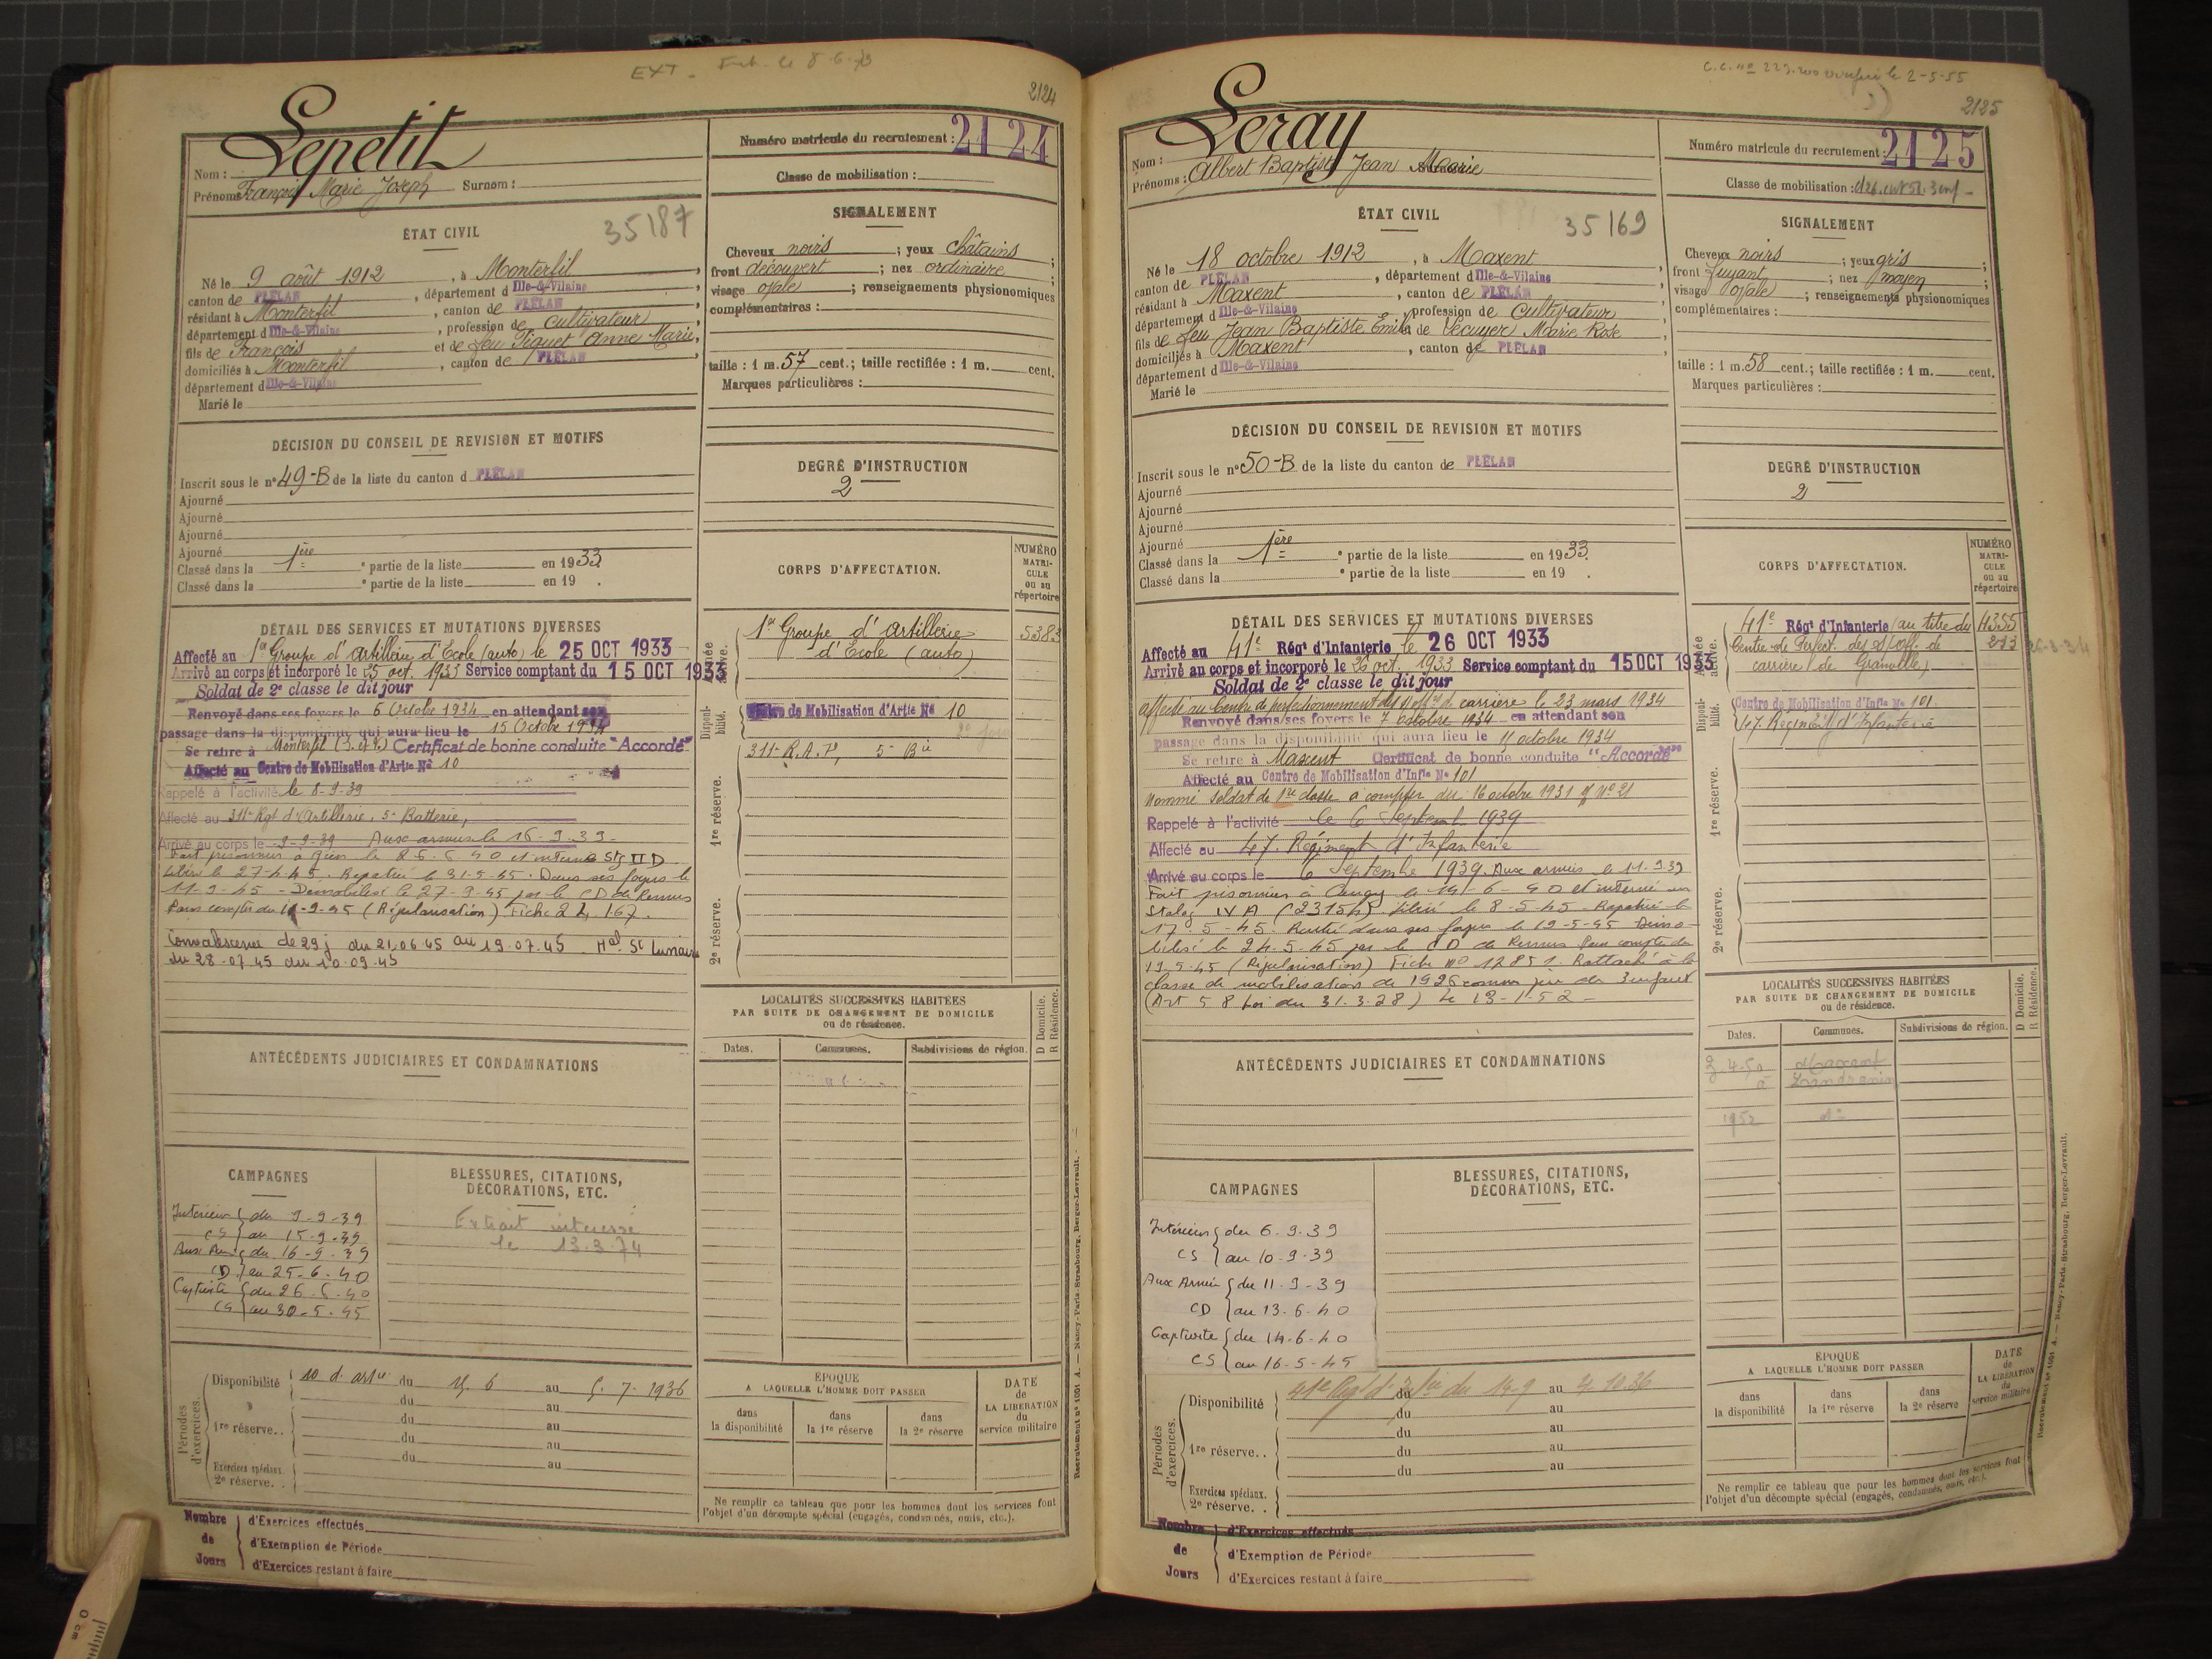 EXT - le 8.6.
2124
Lepetit
Nom :
Prénoms François Marie Joseph Surnom :
Numéro matricule du recrutement : 2124
Classe de mobilisation :
35187
ÉTAT CIVIL
Né le 9 août 1912, à Monterfil,
canton de PLÉLAN, département d Ille-&-Vilaine
résidant à Monterfil, canton de PLÉLAN,
département d Ille-&-Vilaine, profession de cultivateur,
fils de François et de feu Piguet Anne Marie,
domiciliés à Monterfil, canton de PLÉLAN,
département d Ille-&-Vilaine
Marié le
SIGNALEMENT
Cheveux noirs ; yeux châtains ;
front découvert ; nez ordinaire ;
visage ovale ; renseignements physionomiques
complémentaires :
taille : 1 m. 57 cent.; taille rectifiée : 1 m. cent.
Marques particulières :
DÉCISION DU CONSEIL DE REVISION ET MOTIFS
Inscrit sous le n° 49-B de la liste du canton d PLÉLAN
Ajourné
Ajourné
Ajourné
Ajourné
Classé dans la 1ère e partie de la liste en 1933.
Classé dans la e partie de la liste en 19 .
DEGRÉ D'INSTRUCTION
2
CORPS D'AFFECTATION.
NUMÉRO MATRI-CULE ou au répertoire
Armée active.
1er Groupe d'artillerie 5383
d'École (auto)
Disponi-bilité.
Centre de Mobilisation d'Artie N° 10
311e R.A.P, 5e Bie
1re réserve.
2e réserve.
DÉTAIL DES SERVICES ET MUTATIONS DIVERSES
Affecté au 1er Groupe d'artillerie d'École (auto) le 25 OCT 1933
Arrivé au corps et incorporé le 25 oct. 1933 Service comptant du 15 OCT 1933
Soldat de 2e classe le dit jour
Renvoyé dans ses foyers le 6 Octobre 1934 en attendant son
passage dans la disponibilité qui aura lieu le 15 Octobre 1934
Se retire à Monterfil (I. et V.) Certificat de bonne conduite "Accordé"
Affecté au Centre de Mobilisation d'Artie N° 10
Rappelé à l'activité le 8-9-39
Affecté au 311e Rgt d'Artillerie, 5e Batterie,
Arrivé au corps le 9-9-39 Aux armées le 16-9-39-
Fait prisonnier à Gien le 26-6 40 et interné Stg II D
Libéré le 27-4-45. Rapatrié le 31-5-45. Dans ses foyers le
11-9-45 - Démobilisé le 27-9-45 par le CD de Rennes
Pour compter du 11-9-45 (Régularisation) Fiche 24 167.
Convalescence de 29 j du 21.06.45 au 19.07.45 Hal St Lunaire
du 28-07.45 au 10.09.45
LOCALITÉS SUCCESSIVES HABITÉES
PAR SUITE DE CHANGEMENT DE DOMICILE
ou de résidence.
D Domicile. R Résidence.
Dates. Communes. Subdivisions de région.
ANTÉCÉDENTS JUDICIAIRES ET CONDAMNATIONS
CAMPAGNES
Intérieur du 9-9-39
CS au 15-9-39
Aux Arm du 16-9-39
CD au 25-6-40
Captivité du 26-6-40
CS au 30-5-45
BLESSURES, CITATIONS,
DÉCORATIONS, ETC.
Extrait intéressé
le 13.3.74
Périodes d'exercices.
Disponibilité 10 d'artie du 15.6 au 5.7.1936
du au
1re réserve.. du au
du au
Exercices spéciaux. du au
2e réserve. .
ÉPOQUE
A LAQUELLE L'HOMME DOIT PASSER
dans la disponibilité
dans la 1re réserve
dans la 2e réserve
DATE de LA LIBÉRATION du service militaire
Ne remplir ce tableau que pour les hommes dont les services font
l'objet d'un décompte spécial (engagés, condamnés, omis, etc.).
Nombre de Jours
d'Exercices effectués
d'Exemption de Période
d'Exercices restant à faire
Recrutement n° 1001 A. — Nancy-Paris-Strasbourg, Berger-Levrault.
0 cm
C.C. n° 223.200 le 2-5-55
2125
Leray
Nom :
Prénoms : Albert Baptiste Jean Marie
Numéro matricule du recrutement : 2125
Classe de mobilisation : cl 26. art 58. 3 enf -
35169
ÉTAT CIVIL
Né le 18 octobre 1912, à Maxent,
canton de PLÉLAN, département d Ille-&-Vilaine
résidant à Maxent, canton de PLÉLAN,
département d Ille-&-Vilaine, profession de cultivateur,
fils de feu Jean Baptiste Émile et de Lécuyer Marie Rose,
domiciliés à Maxent, canton de PLÉLAN,
département d Ille-&-Vilaine
Marié le
SIGNALEMENT
Cheveux noirs ; yeux gris ;
front fuyant ; nez moyen ;
visage ovale ; renseignements physionomiques
complémentaires :
taille : 1 m. 58 cent.; taille rectifiée : 1 m. cent.
Marques particulières :
DÉCISION DU CONSEIL DE REVISION ET MOTIFS
Inscrit sous le n° 50-B de la liste du canton de PLÉLAN
Ajourné
Ajourné
Ajourné
Ajourné
Classé dans la 1ère e partie de la liste en 1933.
Classé dans la e partie de la liste en 19 .
DEGRÉ D'INSTRUCTION
2
CORPS D'AFFECTATION.
NUMÉRO MATRI-CULE ou au répertoire
Armée active.
41e Régt d'Infanterie (au titre du 4355
Centre de Perfect. des s/off. de 233
carrière de Granville)
Disponi-bilité.
Centre de Mobilisation d'Infie N° 101
47 Régiment d'Infanterie
1re réserve.
2e réserve.
DÉTAIL DES SERVICES ET MUTATIONS DIVERSES
Affecté au 41e Régt d'Infanterie le 26 OCT 1933
Arrivé au corps et incorporé le 26 oct. 1933 Service comptant du 15 OCT 1933
Soldat de 2e classe le dit jour
affecté au Centre de perfectionnement des s/offrs de carrière le 23 mars 1934
Renvoyé dans ses foyers le 7 octobre 1934 en attendant son
passage dans la disponibilité qui aura lieu le 15 octobre 1934
Se retire à Maxent Certificat de bonne conduite "Accordé"
Affecté au Centre de Mobilisation d'Infie N° 101
Nommé soldat de 1re classe à compter du 16 octobre 1931 N° 21
Rappelé à l'activité le 6 Septemb 1939
Affecté au 47 Régiment d'Infanterie
Arrivé au corps le 6 Septembre 1939. Aux armées le 11.9.39
Fait prisonnier à le 14-6-40 et interné au
Stalag IV A (23154). Libéré le 8-5-45 - Rapatrié le
17-5-45. Rentré dans ses foyers le 19-5-45 Démo-
bilisé le 24.5-45 par le CD de Rennes Pour compter du
19-5-45 (Régularisation) Fiche N° 12851. Rattaché à la
classe de mobilisation de 1926 comme père de 3 enfants
(Art 58 Loi du 31.3.28) Le 19-1-52-
LOCALITÉS SUCCESSIVES HABITÉES
PAR SUITE DE CHANGEMENT DE DOMICILE
ou de résidence.
D Domicile. R Résidence.
Dates. Communes. Subdivisions de région.
Maxent
1952 do
ANTÉCÉDENTS JUDICIAIRES ET CONDAMNATIONS
CAMPAGNES
Intérieur du 6.9.39
CS au 10-9-39
Aux Armées du 11.9-39
CD au 13.6.40
Captivité du 14-6-40
CS au 16-5-45
BLESSURES, CITATIONS,
DÉCORATIONS, ETC.
Périodes d'exercices.
Disponibilité 41e Régt d'Infie du 14-9 au 4.10.36
du au
du au
1re réserve.. du au
du au
Exercices spéciaux.
2e réserve. .
ÉPOQUE
A LAQUELLE L'HOMME DOIT PASSER
dans la disponibilité
dans la 1re réserve
dans la 2e réserve
DATE de LA LIBÉRATION du service militaire
Ne remplir ce tableau que pour les hommes dont les services font
l'objet d'un décompte spécial (engagés, condamnés, omis, etc.).
Nombre de Jours
d'Exercices effectués
d'Exemption de Période
d'Exercices restant à faire
Recrutement n° 1001 A. — Nancy-Paris-Strasbourg, Berger-Levrault.